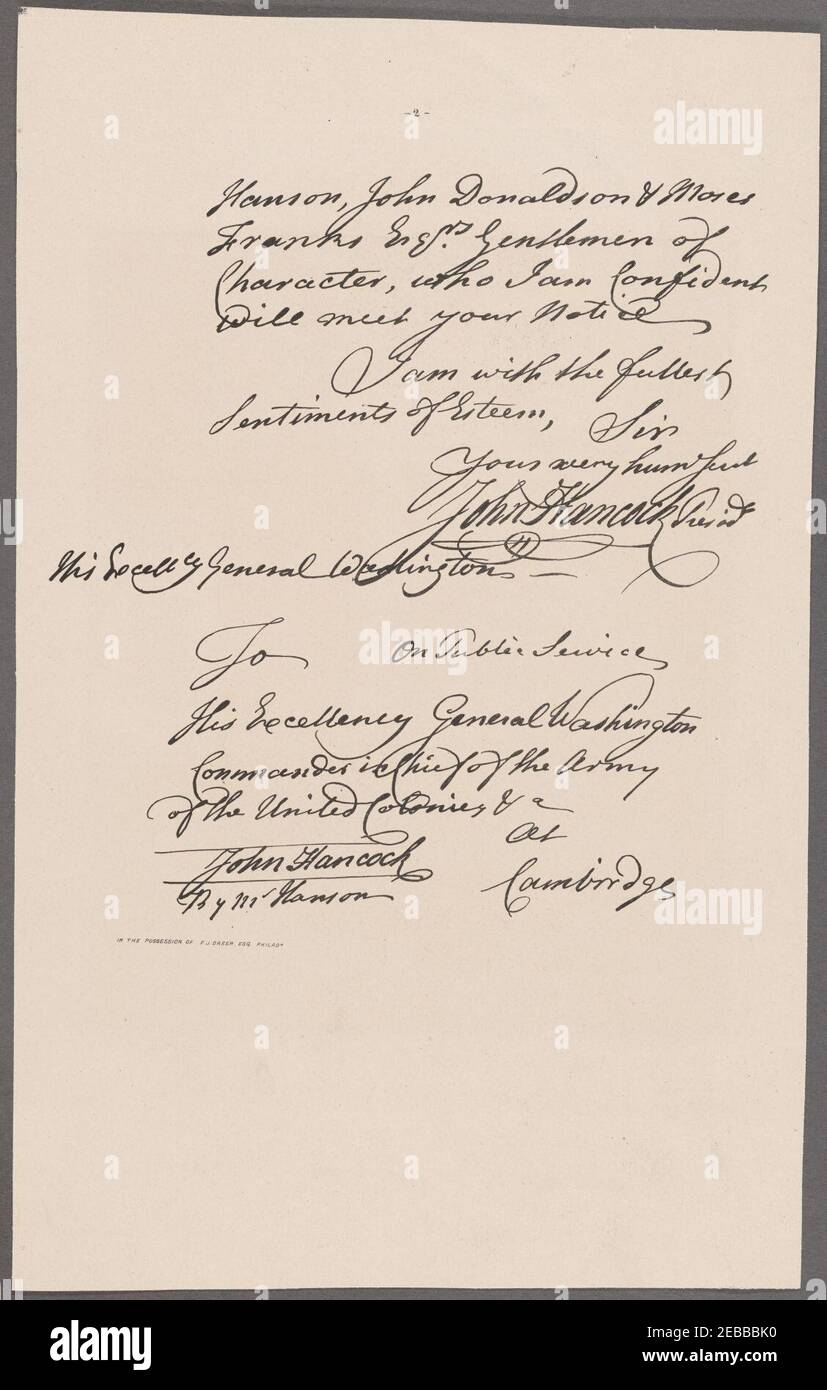 -2-
Hanson, John Donaldson & Moses
Franks Esqrs. Gentlemen of
Character, who I am Confident
will meet your Notice
I am with the fullest
Sentiments of Esteem, Sir
Your very huml Sert
John Hancock Presidt
His Excellcy General Washington
To On Public Service
His Excellency General Washington
Commander in Chief of the Army
of the United Colonies &a
John Hancock At
By Mr Hanson Cambridge
IN THE POSSESSION OF F.J. DREER, ESQ. PHILADA
alamy
Image ID: 2EBBBK0
www.alamy.com